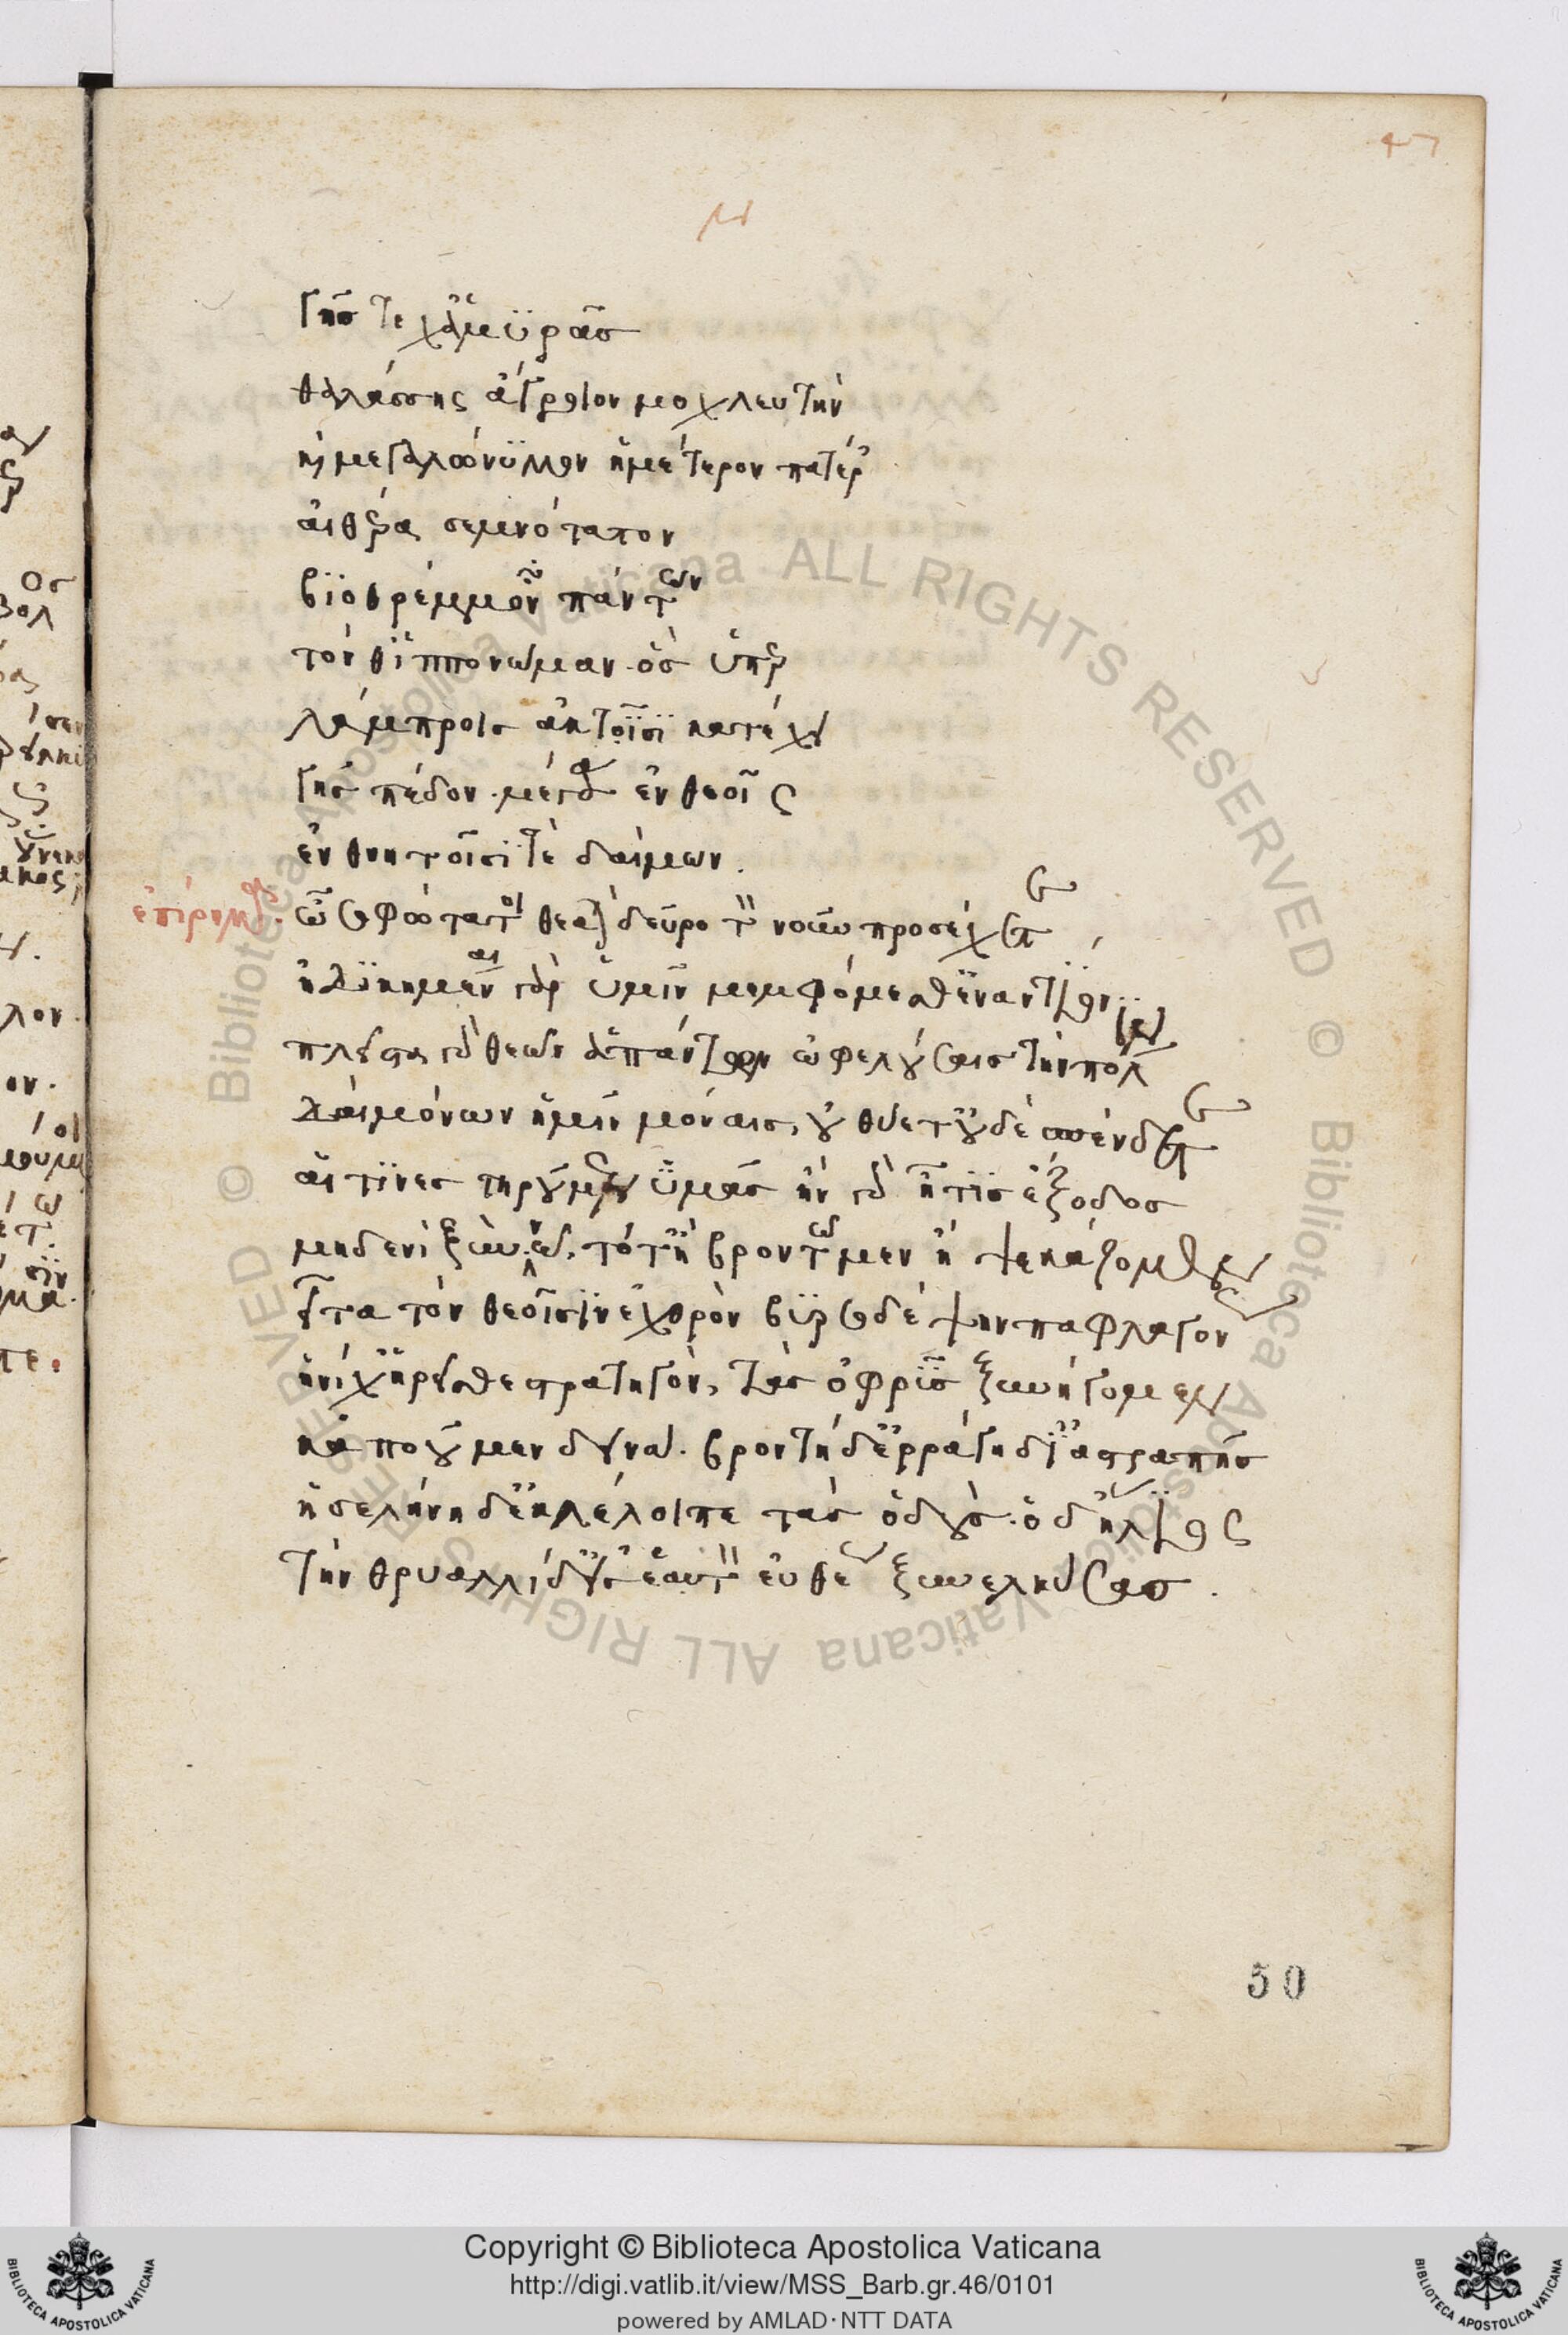 47
γῆς τε χἁλμυρᾶς
θαλάσσης ἄγριον μοχλευτὴν
καὶ μεγαλώνυμον ἡμέτερον πατέρ'
αἰθέρα σεμνότατον
βιοθρέμμονα πάντων
τόν θ' ἱππονώμαν. ὃς ὑπερ
λάμπροις ἀκτοῖσι κατέχει
γῆς πέδον. μέγας ἐν θεοῖς
ἐν θνητοῖσί τε δαίμων.
ἐπίρρημα. ὦ σοφώτατοι θεαταὶ δεῦρο τὸν νοῦν προσέχετε
ἠδικημέναι γὰρ ὑμῖν μεμφόμεσθ' ἐναντίον
πλεῖστα γὰρ θεῶν ἁπάντων ὠφελούσαις τὴν πόλιν
δαιμόνων ἡμῖν μόναις, οὐ θύετ' οὐδὲ σπένδετε
αἵτινες τηροῦμεν ὑμᾶς ἢν γὰρ ᾖ τις ἔξοδος
μηδενὶ ξὺν νῷ. τότ' ἢ βροντῶμεν ἢ ψεκάζομεν
εἶτα τὸν θεοῖσιν ἐχθρὸν βυρσοδέψην παφλαγόνα
ἡνίχ' ᾑρεῖσθε στρατηγὸν, τὰς ὀφρῦς ξυνήγομεν
κἀποιοῦμεν δεινά. βροντὴ δ' ἐρράγη δι' ἀστραπῆς
ἡ σελήνη δ' ἐκλέλοιπε τὰς ὁδούς. ὁ δ' ἥλιος
τὴν θρυαλλίδ' εἰς ἑαυτὸν εὐθέως ξυνελκύσας.
50
Copyright © Biblioteca Apostolica Vaticana
http://digi.vatlib.it/view/MSS_Barb.gr.46/0101
powered by AMLAD·NTT DATA